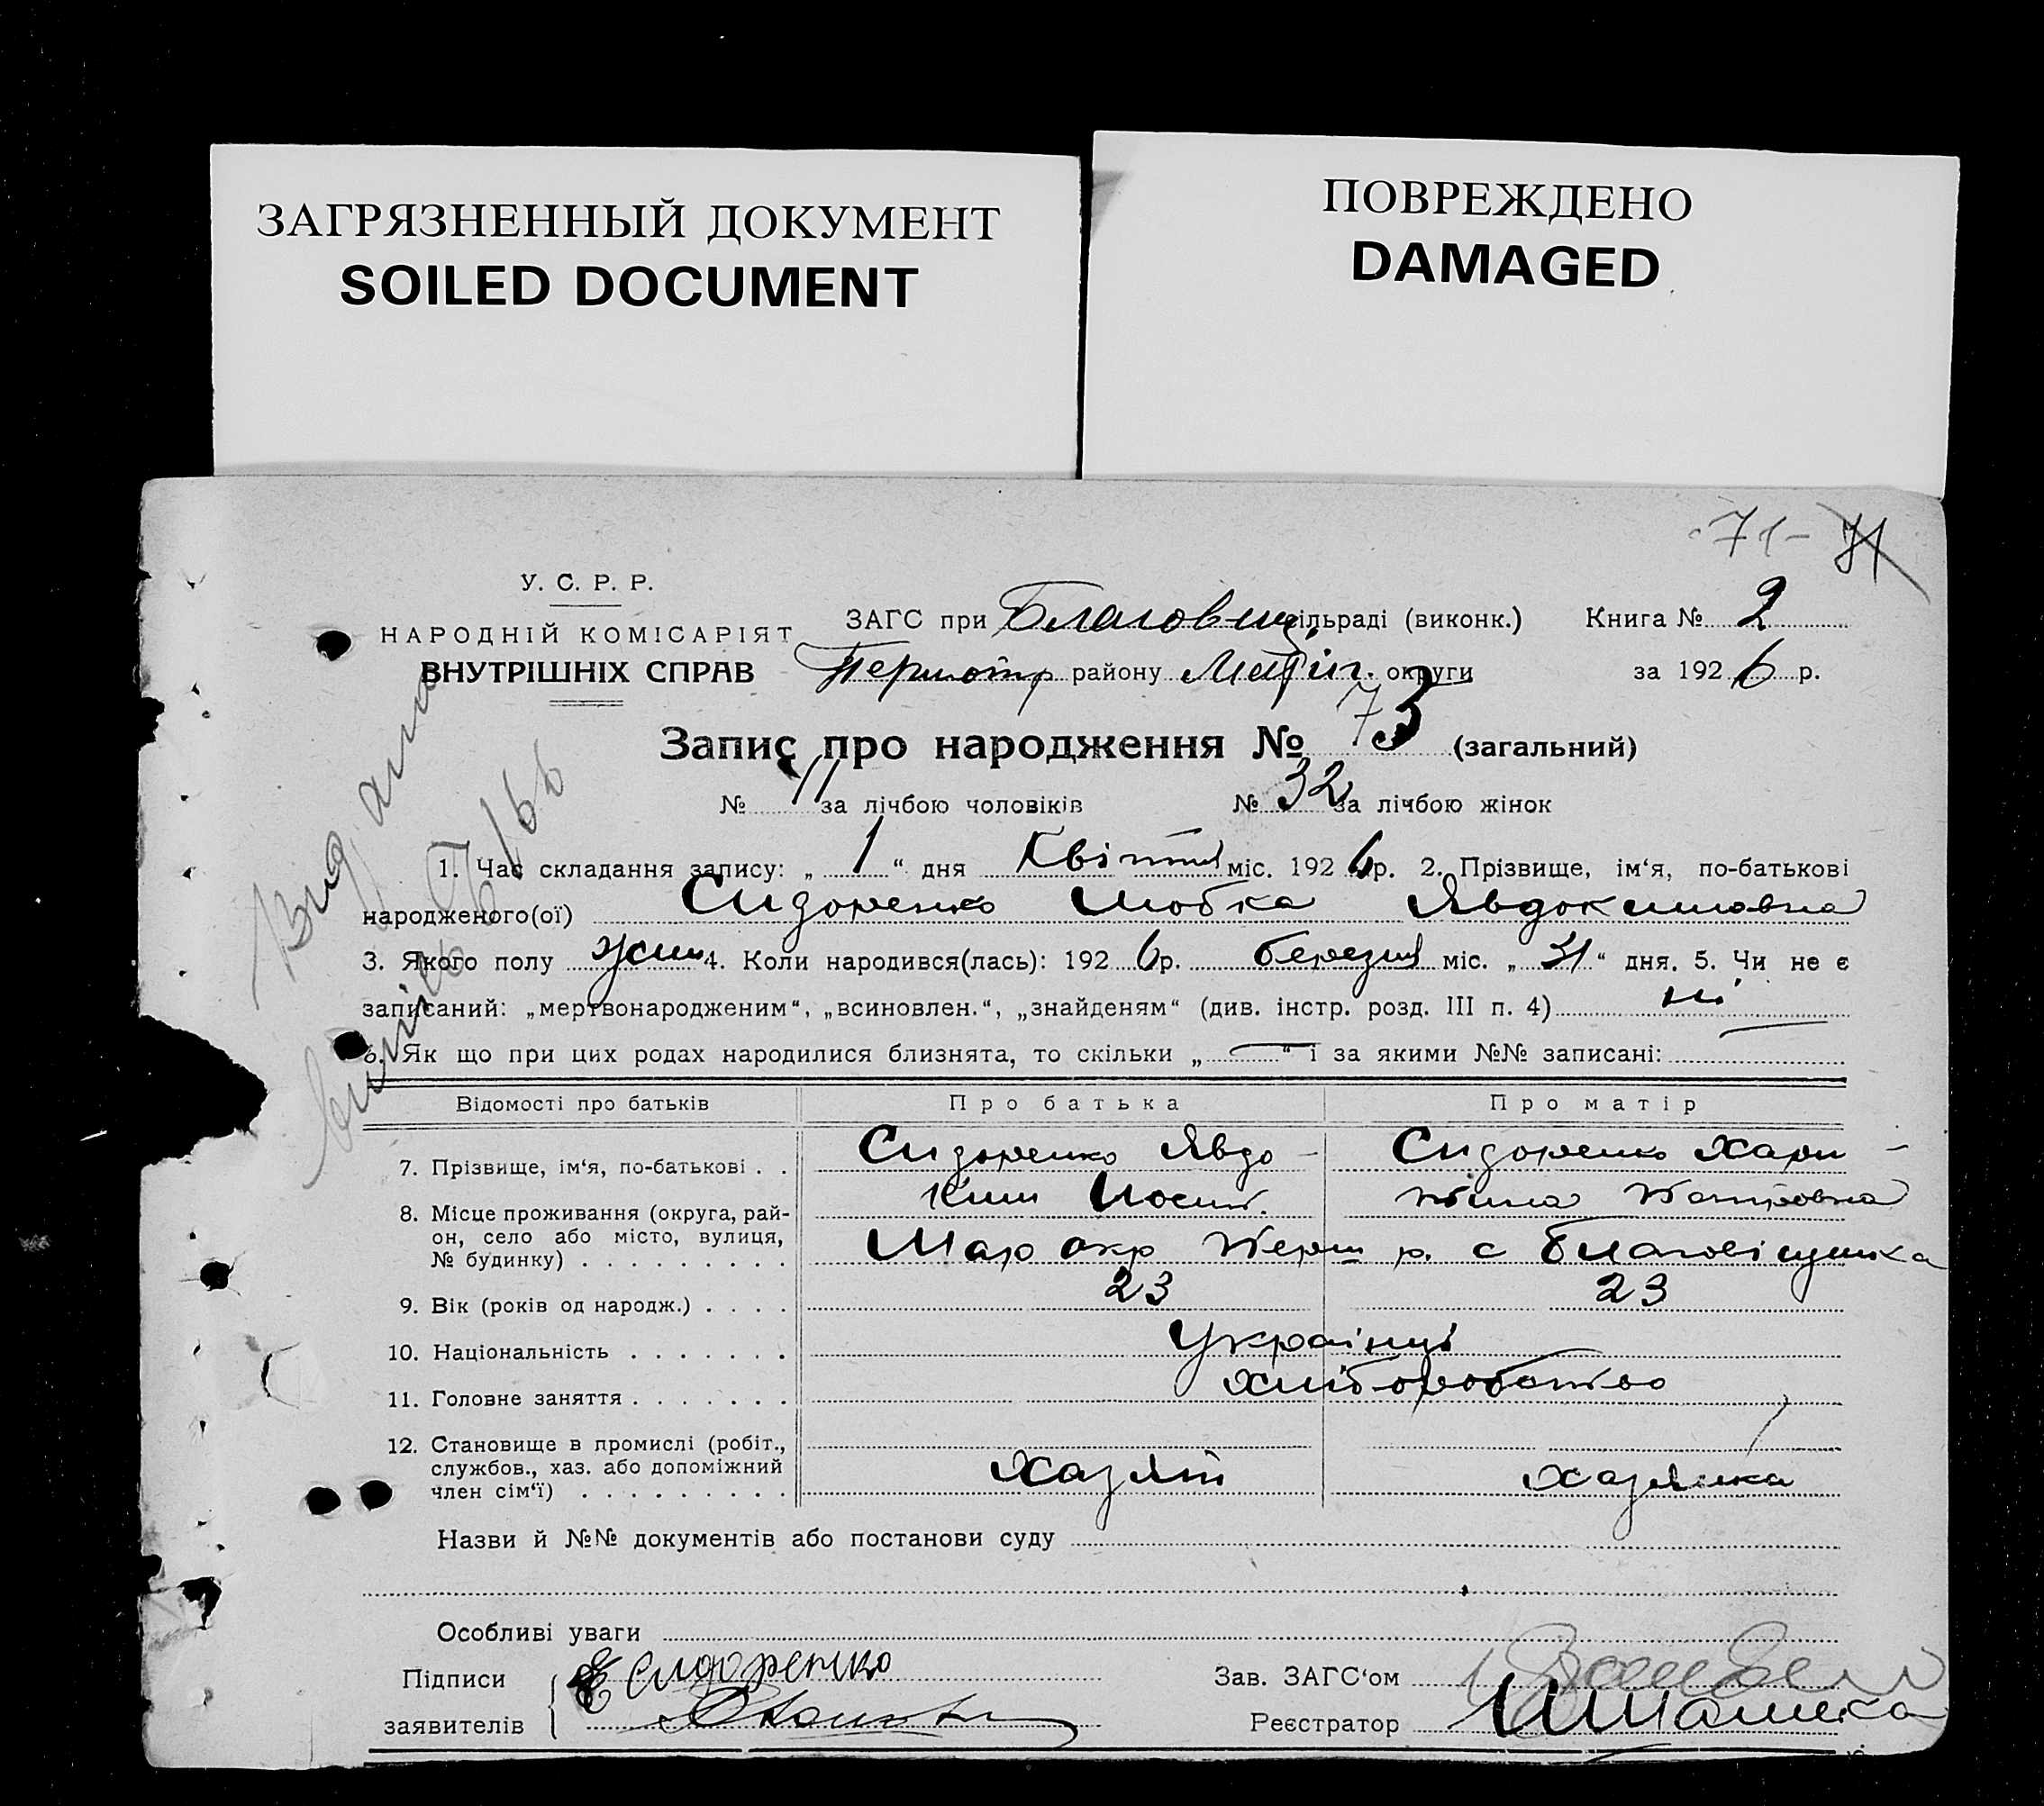 ЗАГРЯЗНЕННЫЙ ДОКУМЕНТ
SOILED DOCUMENT
ПОВРЕЖДЕНО
DAMAGED
71- 71
У. С. Р. Р.
НАРОДНІЙ КОМІСАРІЯТ
ВНУТРІШНІХ СПРАВ
ЗАГС при Благовищ. сільраді (виконк.) Книга № 2
району округи за 1926 р.
Запис про народження № 73 (загальний)
№ за лічбою чоловіків № 32 за лічбою жінок
1. Час складання запису: „ 1 “ дня Квітня міс. 1926 р. 2. Прізвище, ім‘я, по-батькові
народженого(ої) Сидоренко Любка Явдокимовна
3. Якого полу жін 4. Коли народився(лась): 1926 р. березня міс. „ 31 “ дня. 5. Чи не є
записаний: „мертвонародженим“, „всиновлен.“, „знайденям“ (див. інстр. розд. III п. 4) ні
6. Як що при цих родах народилися близнята, то скільки „ — “ і за якими №№ записані:
Відомості про батьків Про батька Про матір
7. Прізвище, ім‘я, по-батькові . . Сидоренко Явдо- Сидоренко Хари-
ким Йосип. тина Петровна
8. Місце проживання (округа, рай-
он, село або місто, вулиця,
№ будинку) . . . . . . . . . Мар окр Перш р. с Благовіщенка
9. Вік (років од народж.) . . . . 23 23
10. Національність . . . . . . . Українці
11. Головне заняття . . . . . . . Хліборобство
12. Становище в промислі (робіт.,
службов., хаз. або допоміжний
член сім‘ї) . . . . . . . . . Хазяїн хазяйка
Назви й №№ документів або постанови суду
Особливі уваги
Підписи Е Сидоренко Зав. ЗАГС‘ом
заявителів Реєстратор